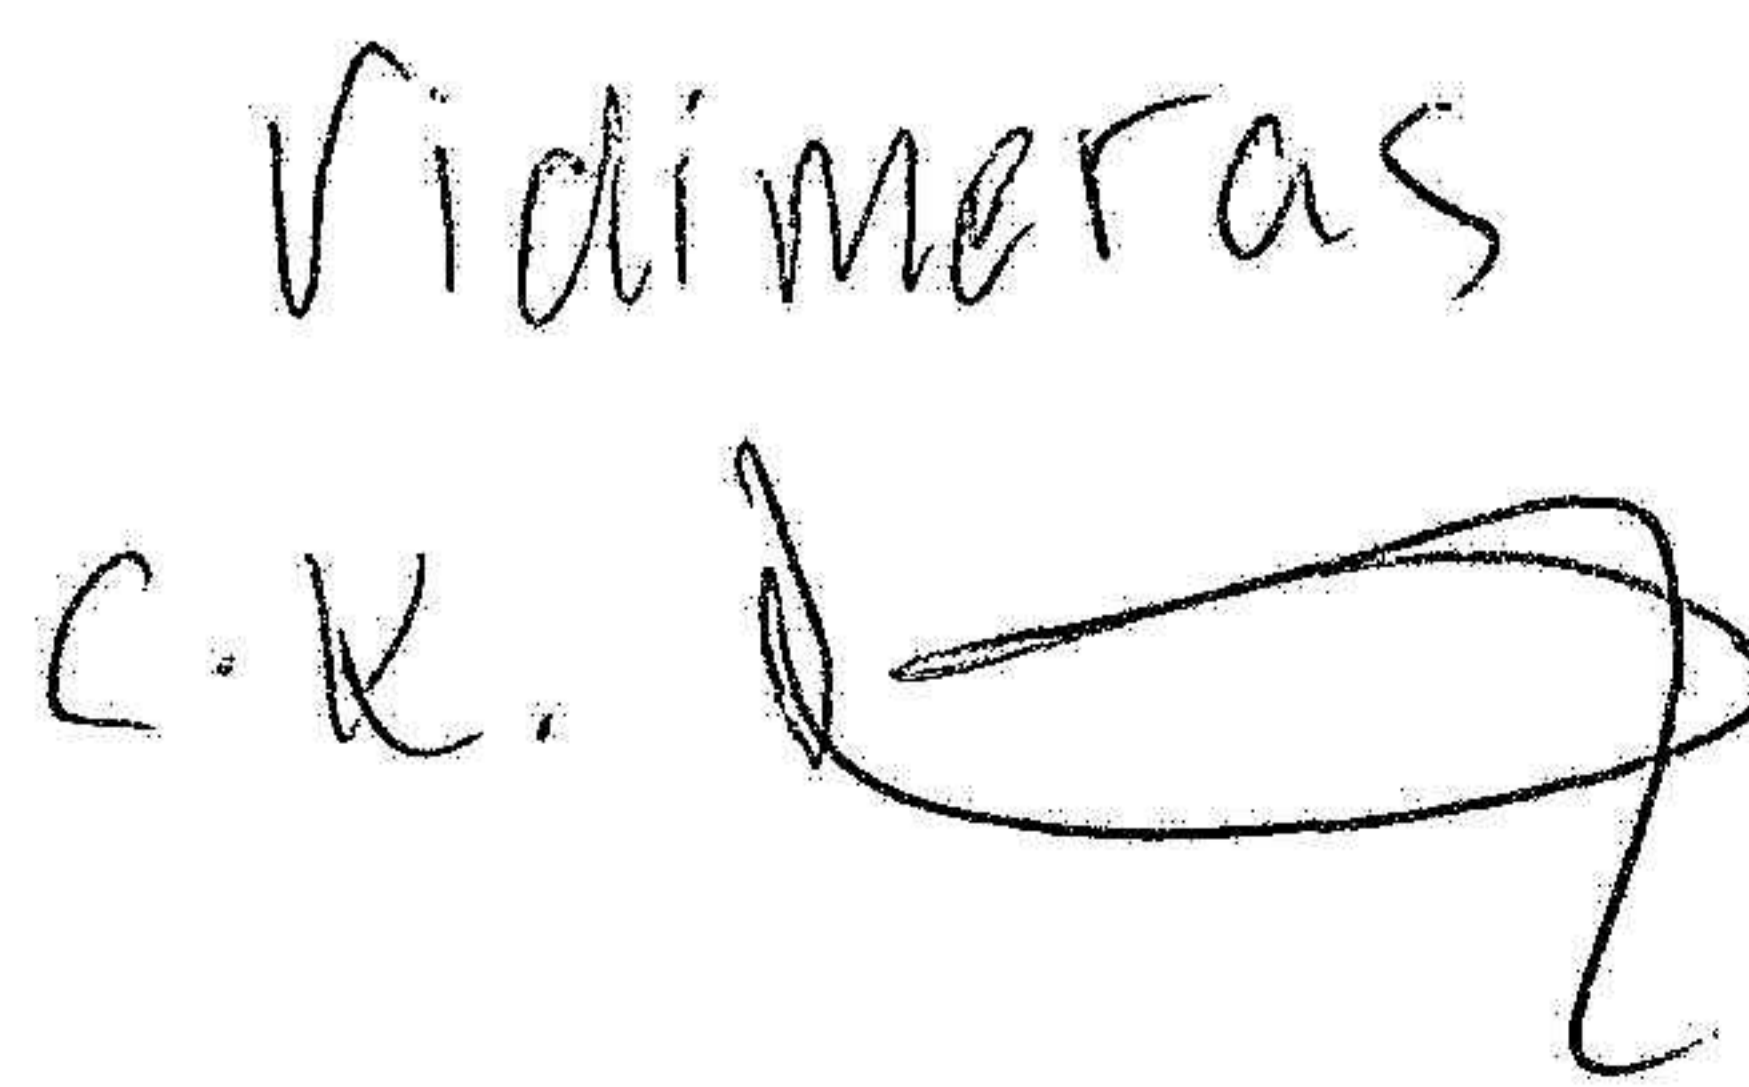 Vidimeras
C. K.